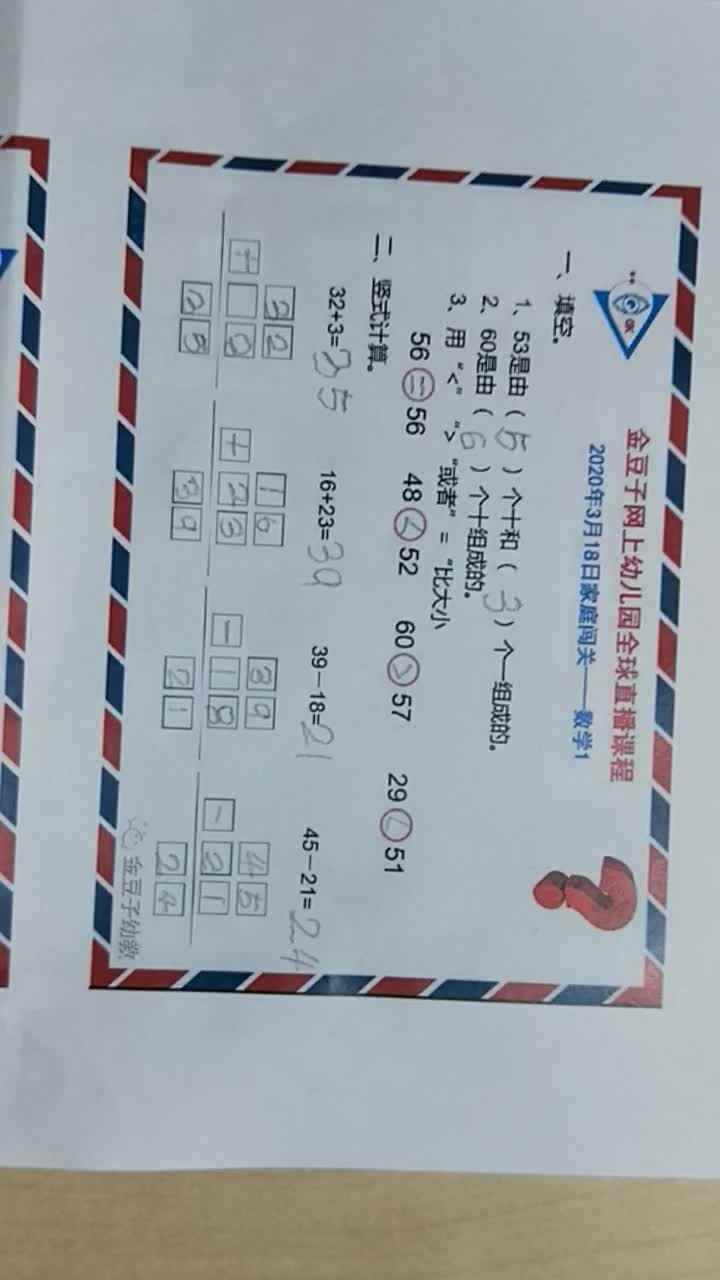 金豆子网上幼儿园全球直播课程
2020年3月18日家庭闯关——数学1
OK
一、填空。
1、53是由（ 5 ）个十和（ 3 ）个一组成的。
2、60是由（ 6 ）个十组成的。
3、用“<”“>“或者”=“比大小
56 = 56 48 < 52 60 > 57 29 < 51
二、竖式计算。
32+3=35 16+23=39 39－18=21 45－21=24
32 16 39 45
+ 3 + 23 － 18 － 21
35 39 21 24
金豆子幼教